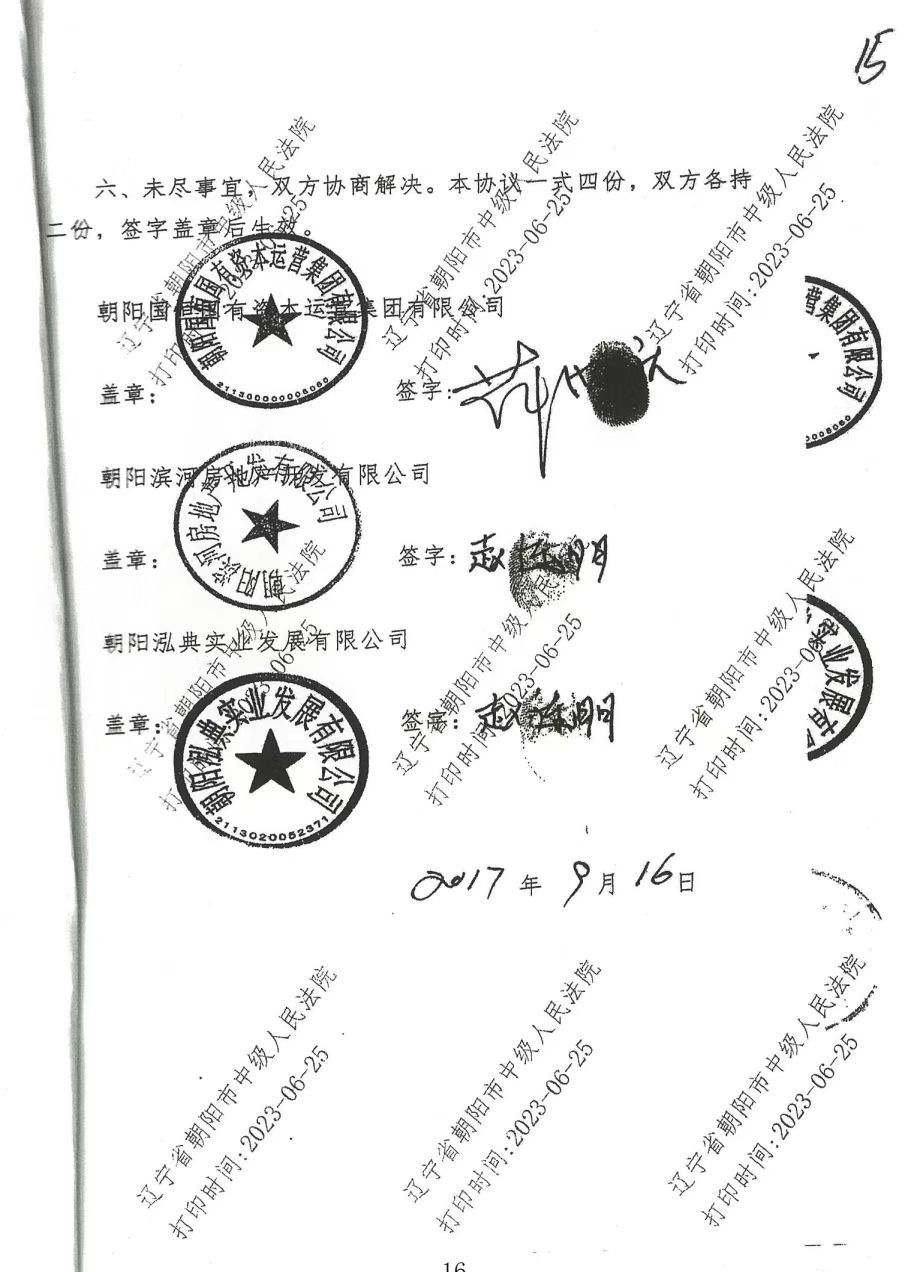 15
六、未尽事宜，双方协商解决。本协议一式四份，双方各持
二份，签字盖章后生效。
朝阳国恒国有资本运营集团有限公司
朝阳国恒国有资本运营集团有限公司
盖章：
签字：
营集团有限公司
朝阳滨河房地产开发有限公司
朝阳滨河房地产开发有限公司
盖章：
签字：
朝阳泓典实业发展有限公司
盖章：
朝阳泓典实业发展有限公司
2113020052371
签字：
实业发展有
2017年9月16日
辽宁省朝阳市中级人民法院
打印时间:2023-06-25
辽宁省朝阳市中级人民法院
打印时间:2023-06-25
辽宁省朝阳市中级人民法院
打印时间:2023-06-25
辽宁省朝阳市中级人民法院
打印时间:2023-06-25
辽宁省朝阳市中级人民法院
打印时间:2023-06-25
辽宁省朝阳市中级人民法院
打印时间:2023-06-25
辽宁省朝阳市中级人民法院
打印时间:2023-06-25
辽宁省朝阳市中级人民法院
打印时间:2023-06-25
辽宁省朝阳市中级人民法院
打印时间:2023-06-25
16